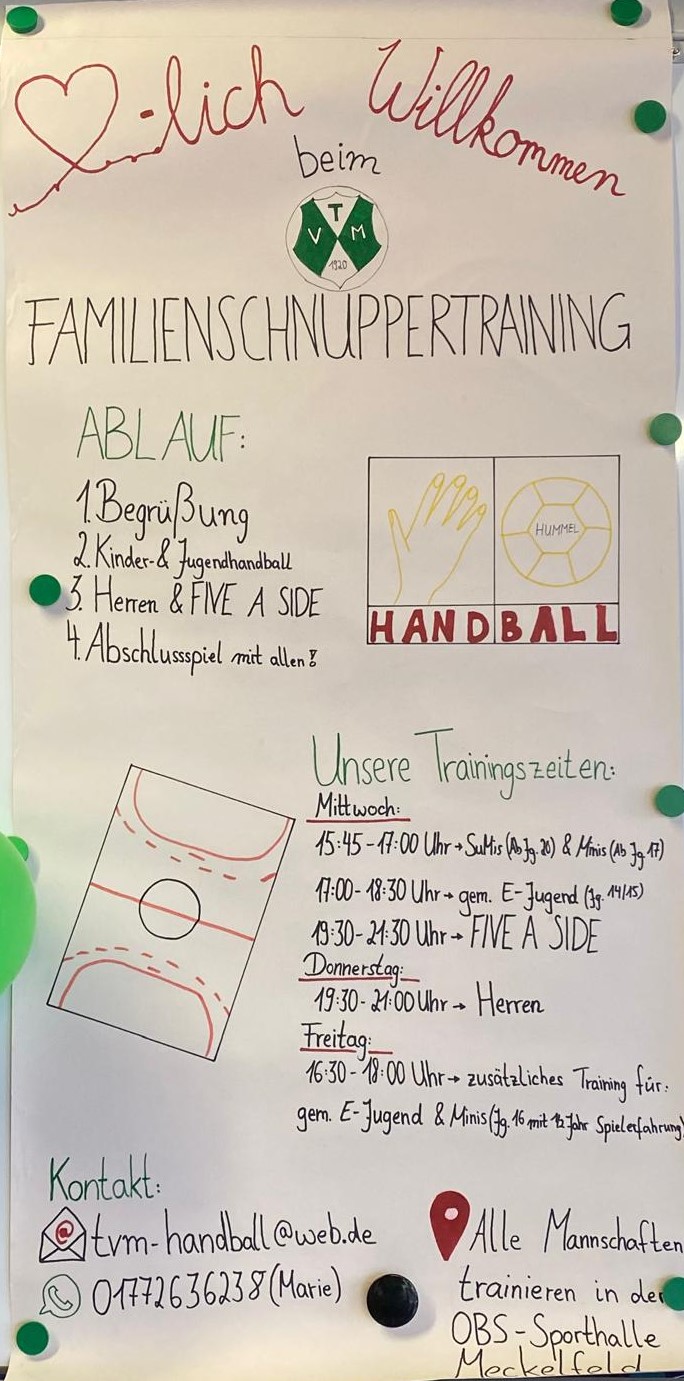 -lich Willkommen
beim
T
V M
1920
FAMILIENSCHNUPPERTRAINING
ABLAUF:
1. Begrüßung
2. Kinder- & Jugendhandball
3. Herren & FIVE A SIDE
4. Abschlussspiel mit allen!
HUMMEL
HANDBALL
Unsere Trainingszeiten:
Mittwoch:
15:45-17:00 Uhr → SuMis (Ab Jg. 20) & Minis (Ab Jg 17)
17:00-18:30 Uhr → gem. E-Jugend (Jg. 14/15)
19:30-21:30 Uhr → FIVE A SIDE
Donnerstag:
19:30-21:00 Uhr → Herren
Freitag:
16:30-18:00 Uhr → zusätzliches Training für:
gem. E-Jugend & Minis (Jg. 16 mit 1½ Jahr Spielerfahrung)
Kontakt:
@ tvm-handball@web.de
01772636238 (Marie)
Alle Mannschaften
trainieren in der
OBS-Sporthalle
Meckelfeld